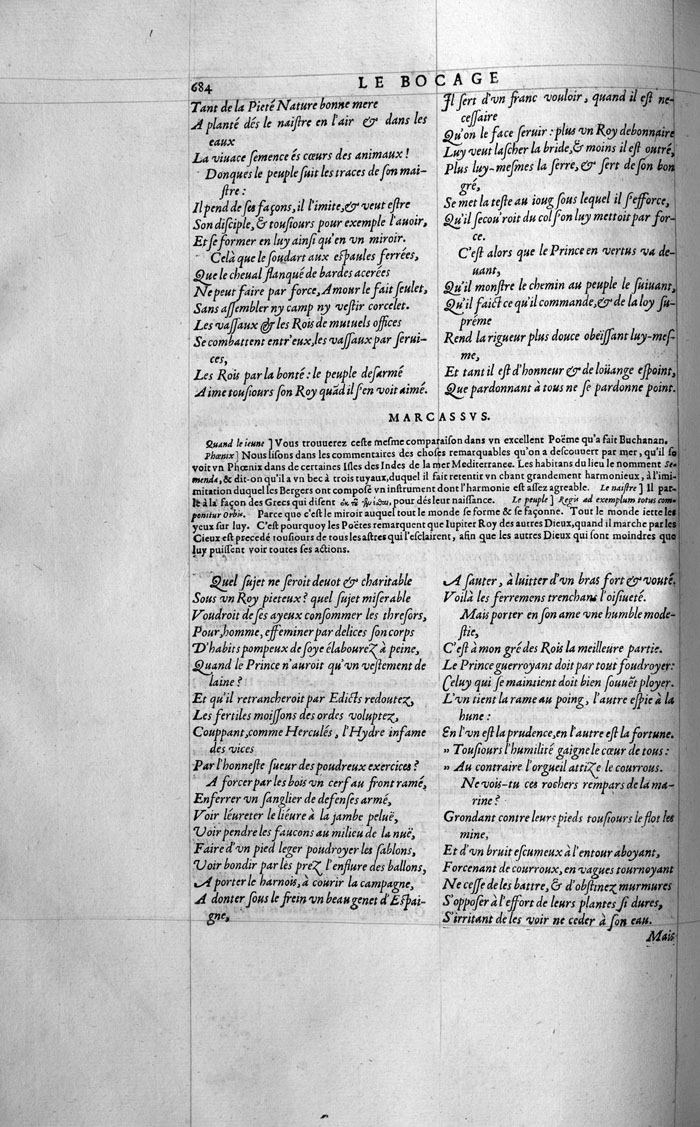 684
LE BOCAGE
Tant de la Pieté Nature bonne mere
A planté dés le naistre en l'air & dans les
eaux
La viuace semence és cœurs des animaux!
Donques le peuple suit les traces de son mai-
stre:
Il pend de ses façons, il l'imite, & veut estre
Son disciple, & tousiours pour exemple l'auoir,
Et se former en luy ainsi qu'en vn miroir.
Celà que le soudart aux espaules ferrées,
Que le cheual flanqué de bardes acerées
Ne peut faire par force, Amour le fait seulet,
Sans assembler ny camp ny vestir corcelet.
Les vassaux & les Rois de mutuels offices
Se combattent entr'eux, les vassaux par serui-
ces,
Les Rois par la bonté: le peuple desarmé
Aime tousiours son Roy quãd il s'en voit aimé.
Il sert d'vn franc vouloir, quand il est ne-
cessaire
Qu'on le face seruir: plus vn Roy debonnaire
Luy veut lascher la bride, & moins il est outré,
Plus luy-mesmes la serre, & sert de son bon
gré,
Se met la teste au ioug sous lequel il s'efforce,
Qu'il secou'roit du col s'on luy mettoit par for-
ce.
C'est alors que le Prince en vertus va de-
uant,
Qu'il monstre le chemin au peuple le suiuant,
Qu'il faict ce qu'il commande, & de la loy su-
préme
Rend la rigueur plus douce obeïssant luy-mes-
me,
Et tant il est d'honneur & de loüange espoint,
Que pardonnant à tous ne se pardonne point.
MARCASSVS.
Quand le ieune ] Vous trouuerez ceste mesme comparaison dans vn excellent Poëme qu'a fait Buchanan.
Phœnix ] Nous lisons dans les commentaires des choses remarquables qu'on a descouuert par mer, qu'il se
voit vn Phœnix dans de certaines Isles des Indes de la mer Mediterranee. Les habitans du lieu le nomment Se-
menda, & dit-on qu'il a vn bec à trois tuyaux, duquel il fait retentir vn chant grandement harmonieux, à l'imi-
mitation duquel les Bergers ont composé vn instrument dont l'harmonie est assez agreable. Le naistre ] Il par-
le à la façon des Grecs qui disent pour dés leur naissance. Le peuple ] Regis ad exemplum totus com-
ponitur orbis. Parce que c'est le miroir auquel tout le monde se forme & se façonne. Tout le monde iette les
yeux sur luy. C'est pourquoy les Poëtes remarquent que Iupiter Roy des autres Dieux, quand il marche par les
Cieux est precedé tousiours de tous les astres qui l'esclairent, afin que les autres Dieux qui sont moindres que
luy puissent voir toutes ses actions.
Quel sujet ne seroit deuot & charitable
Sous vn Roy pieteux? quel sujet miserable
Voudroit de ses ayeux consommer les thresors,
Pour, homme, effeminer par delices son corps
D'habits pompeux de soye élabourez à peine,
Quand le Prince n'auroit qu'vn vestement de
laine?
Et qu'il retrancheroit par Edicts redoutez,
Les fertiles moissons des ordes voluptez,
Couppant, comme Herculés, l'Hydre infame
des vices
Par l'honneste sueur des poudreux exercices?
A forcer par les bois vn cerf au front ramé,
Enferrer vn sanglier de defenses armé,
Voir léureter le liéure à la jambe peluë,
Voir pendre les faucons au milieu de la nuë,
Faire d'vn pied leger poudroyer les sablons,
Voir bondir par les prez l'enflure des ballons,
A porter le harnois, à courir la campagne,
A donter sous le frein vn beau genet d'Espai-
gne,
A sauter, à luitter d'vn bras fort & vouté.
Voilà les ferremens trenchans l'oisiueté.
Mais porter en son ame vne humble mode-
stie,
C'est à mon gré des Rois la meilleure partie.
Le Prince guerroyant doit par tout foudroyer:
Celuy qui se maintient doit bien souuẽt ployer.
L'vn tient la rame au poing, l'autre espie à la
hune:
En l'vn est la prudence, en l'autre est la fortune.
» Tousiours l'humilité gaigne le cœur de tous:
» Au contraire l'orgueil attize le courrous.
Ne vois-tu ces rochers rempars de la ma-
rine?
Grondant contre leurs pieds tousiours le flot les
mine,
Et d'vn bruit escumeux à l'entour aboyant,
Forcenant de courroux, en vagues tournoyant
Ne cesse de les battre, & d'obstinez murmures
S'opposer à l'effort de leurs plantes si dures,
S'irritant de les voir ne ceder à son eau.
Mais